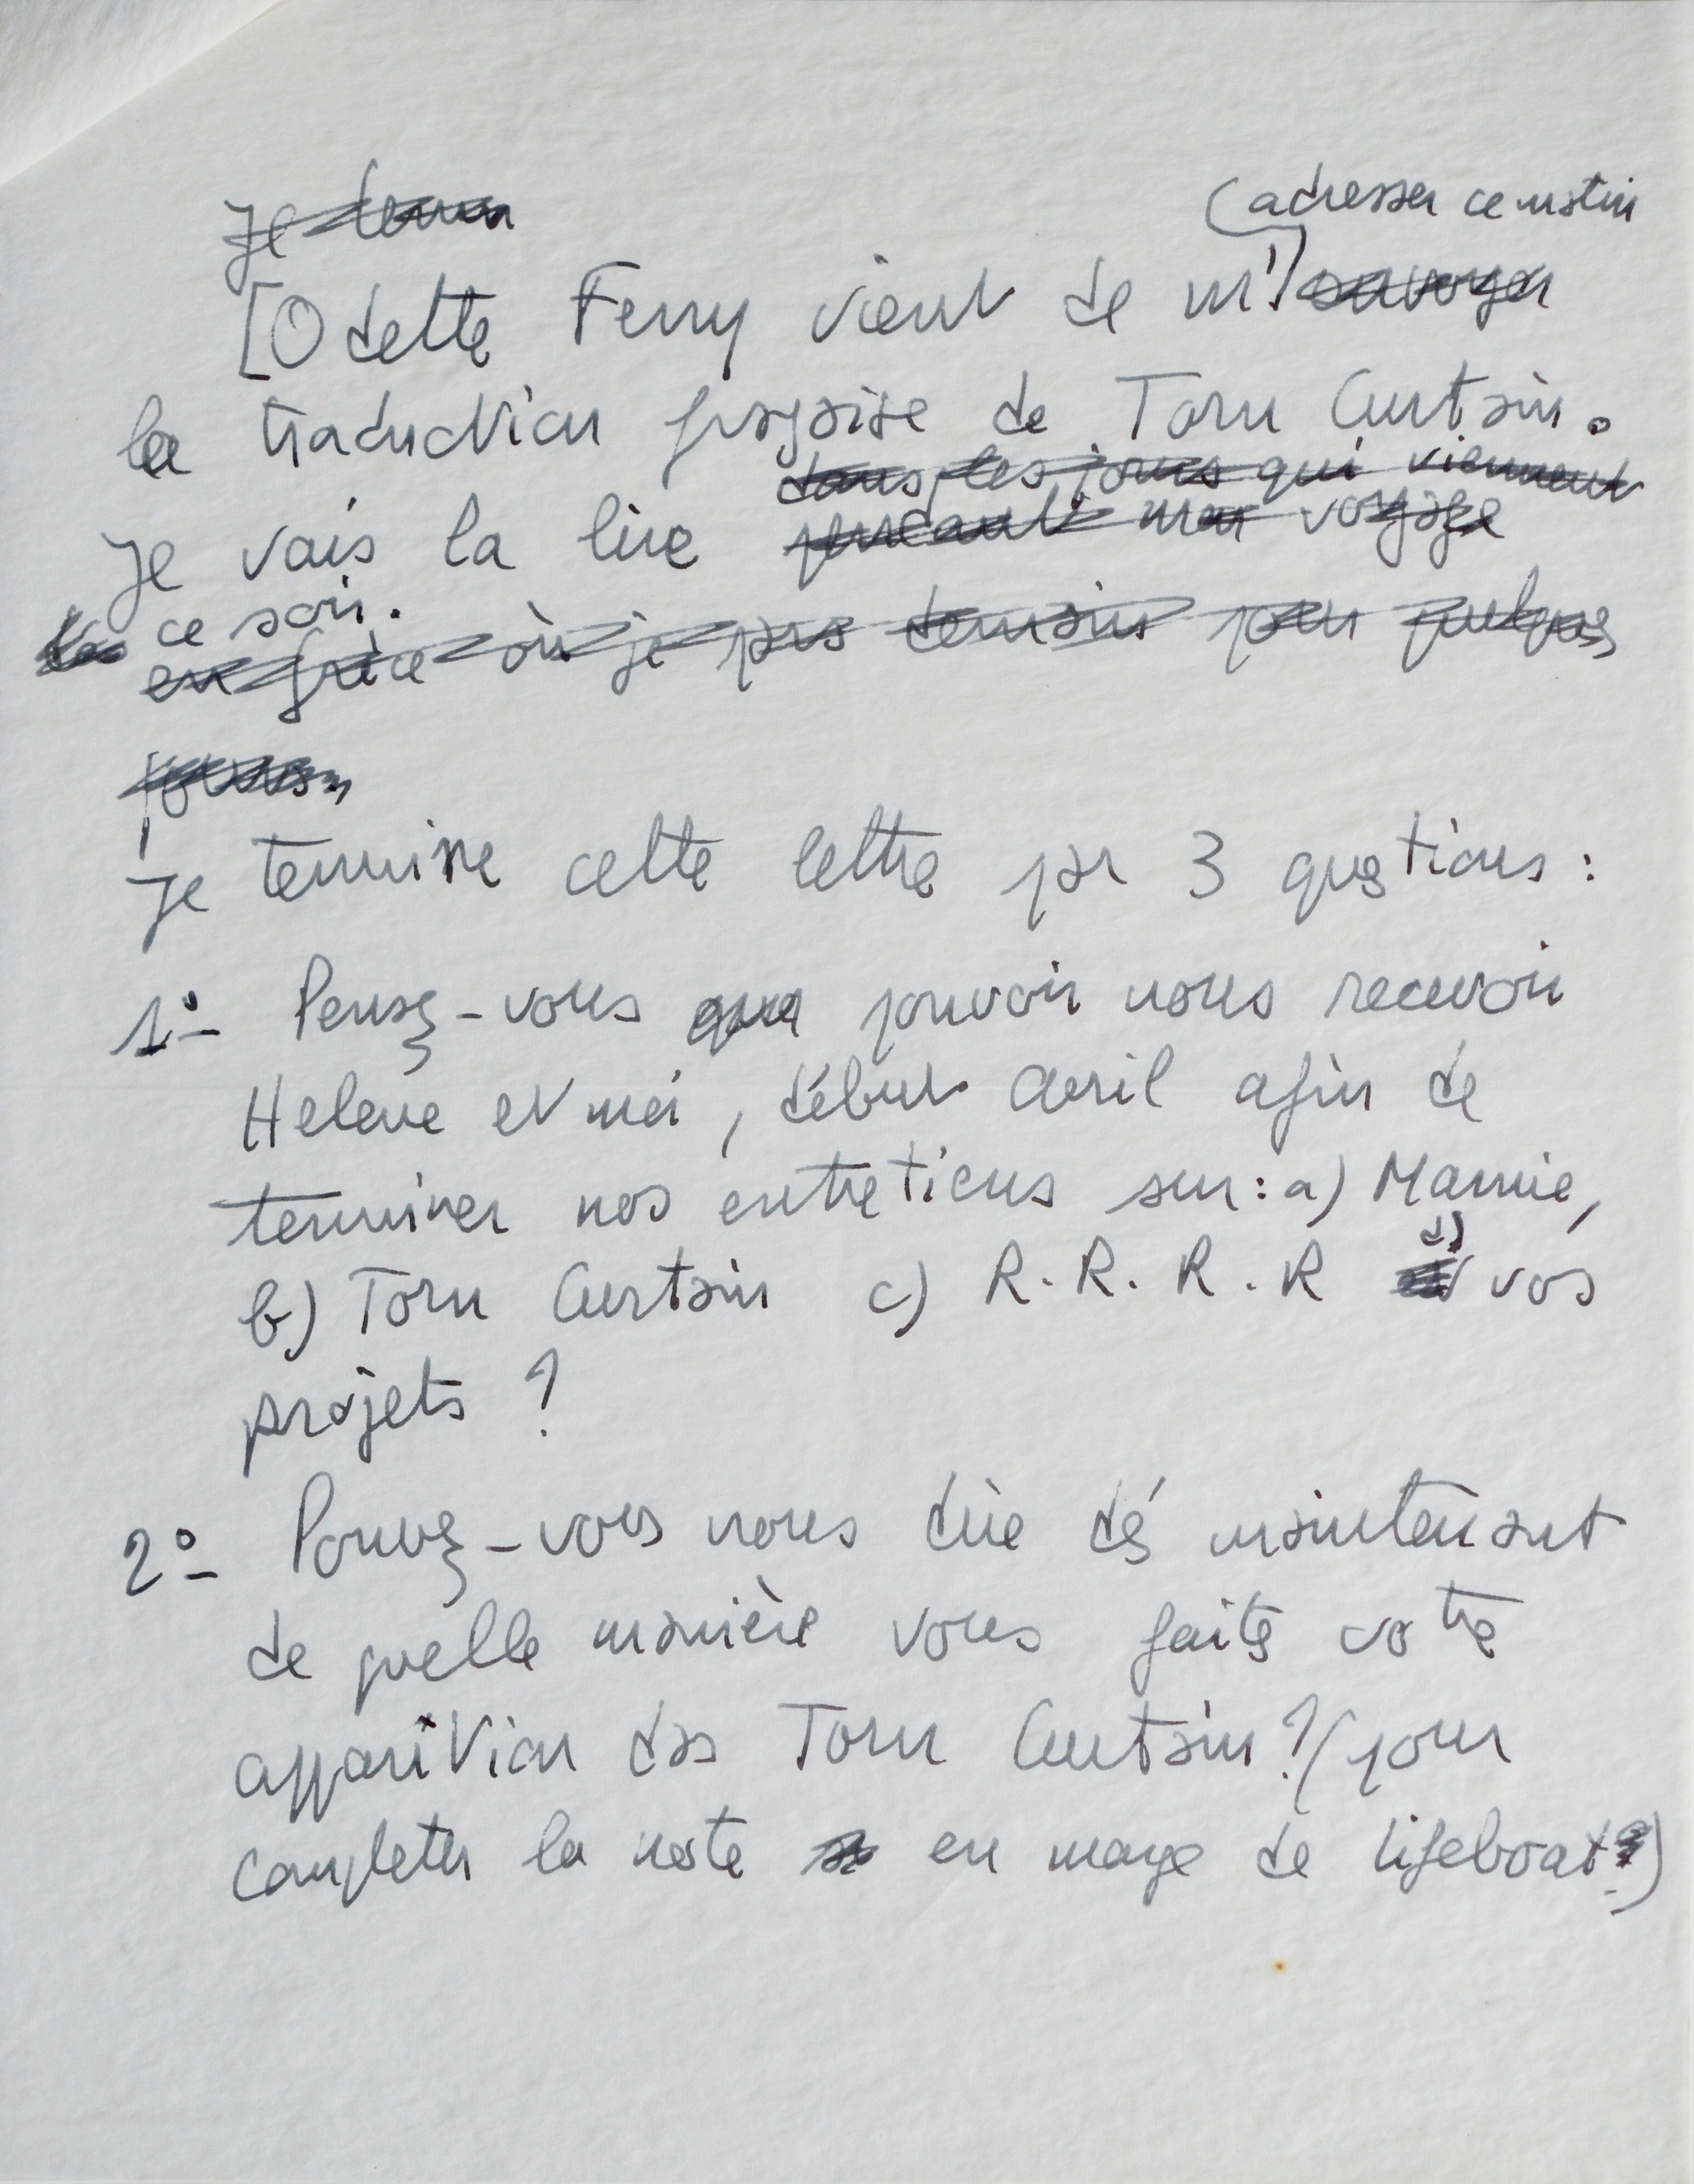 Je
adresser ce matin
[Odette Ferry vient de m'envoyer
la traduction française de Torn Curtain.
dans les jours qui viennent
Je vais la lire pendant mon voyage
ce soir.
en Grèce où je pars demain pour quelques
jours
Je termine cette lettre par 3 questions :
1°- Pensez-vous que pouvoir nous recevoir
Helene et moi, début avril afin de
terminer nos entretiens sur : a) Marnie,
d)
b) Torn Curtain c) R.R.R.R et vos
projets ?
2°- Pouvez-vous nous dire dés maintenant
de quelle manière vous faites votre
apparition ds Torn Curtain ? (pour
completer la note en marge de Lifeboat)